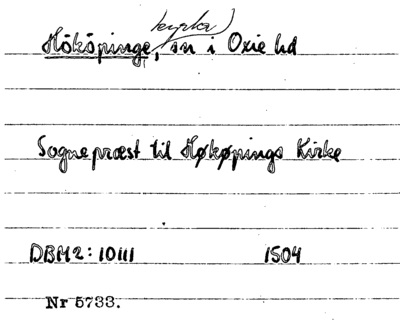 kyrka)
Hököpinge, sn i Oxie hd
Sognepræst til Høkøpings Kirke
DBM2: 10111 1504
Nr 5733.